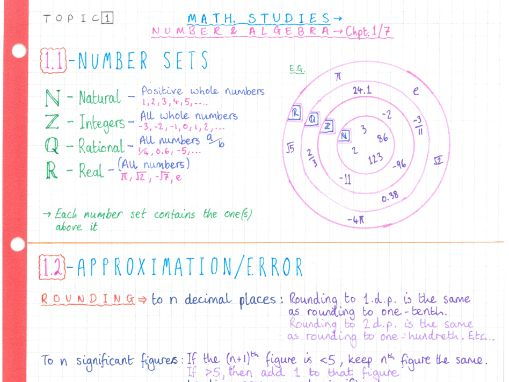 TOPIC 1
MATH. STUDIES →
NUMBER & ALGEBRA → Chpt. 1/7
1.1 - NUMBER SETS
N - Natural - Positive whole numbers
1, 2, 3, 4, 5, ...
Z - Integers - All whole numbers
-3, -2, -1, 0, 1, 2, ...
Q - Rational - All numbers a/b
1/4, 0.6, -5, ...
R - Real - (All numbers)
π, √2, -√7, e
→ Each number set contains the one(s)
above it
E.G.
π
24.1
e
R Q Z N
3
-2
86
-3/11
√5
2/3
2
123
-96
-11
0.38
-4π
1.2 - APPROXIMATION/ERROR
ROUNDING ⇒ to n decimal places: Rounding to 1.d.p. is the same
as rounding to one-tenth.
Rounding to 2.d.p. is the same
as rounding to one-hundreth. Etc...
To n significant figures: If the (n+1)th figure is <5, keep nth figure the same.
If >5, then add 1 to that figure